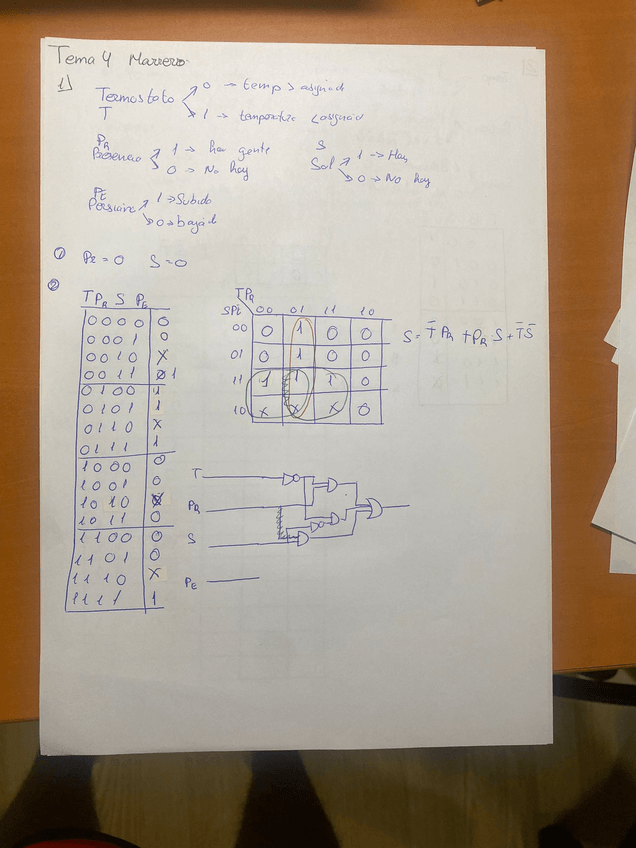 Tema 4 Marrero.
1)
Termostato 0 → temp > asignad
T 1 → temperatura < asignad
PR
Presencia 1 → hay gente
0 → No hay
S
Sol 1 → Hay
0 → No hay
PE
Persiana 1 → Subida
0 → bajad
① PR = 0 S = 0
②
T PR S PE
0 0 0 0 0
0 0 0 1 0
0 0 1 0 X
0 0 1 1 1
0 1 0 0 1
0 1 0 1 1
0 1 1 0 X
0 1 1 1 1
1 0 0 0 0
1 0 0 1 0
1 0 1 0
1 0 1 1 0
1 1 0 0 0
1 1 0 1 0
1 1 1 0 X
1 1 1 1 1
TPR
SPE 00 01 11 10
00 0 1 0 0
01 0 1 0 0
11 1 1 1 0
10 X X X 0
S = T̅ PR + PR · S + T̅ S̅
T
PR
S
PE